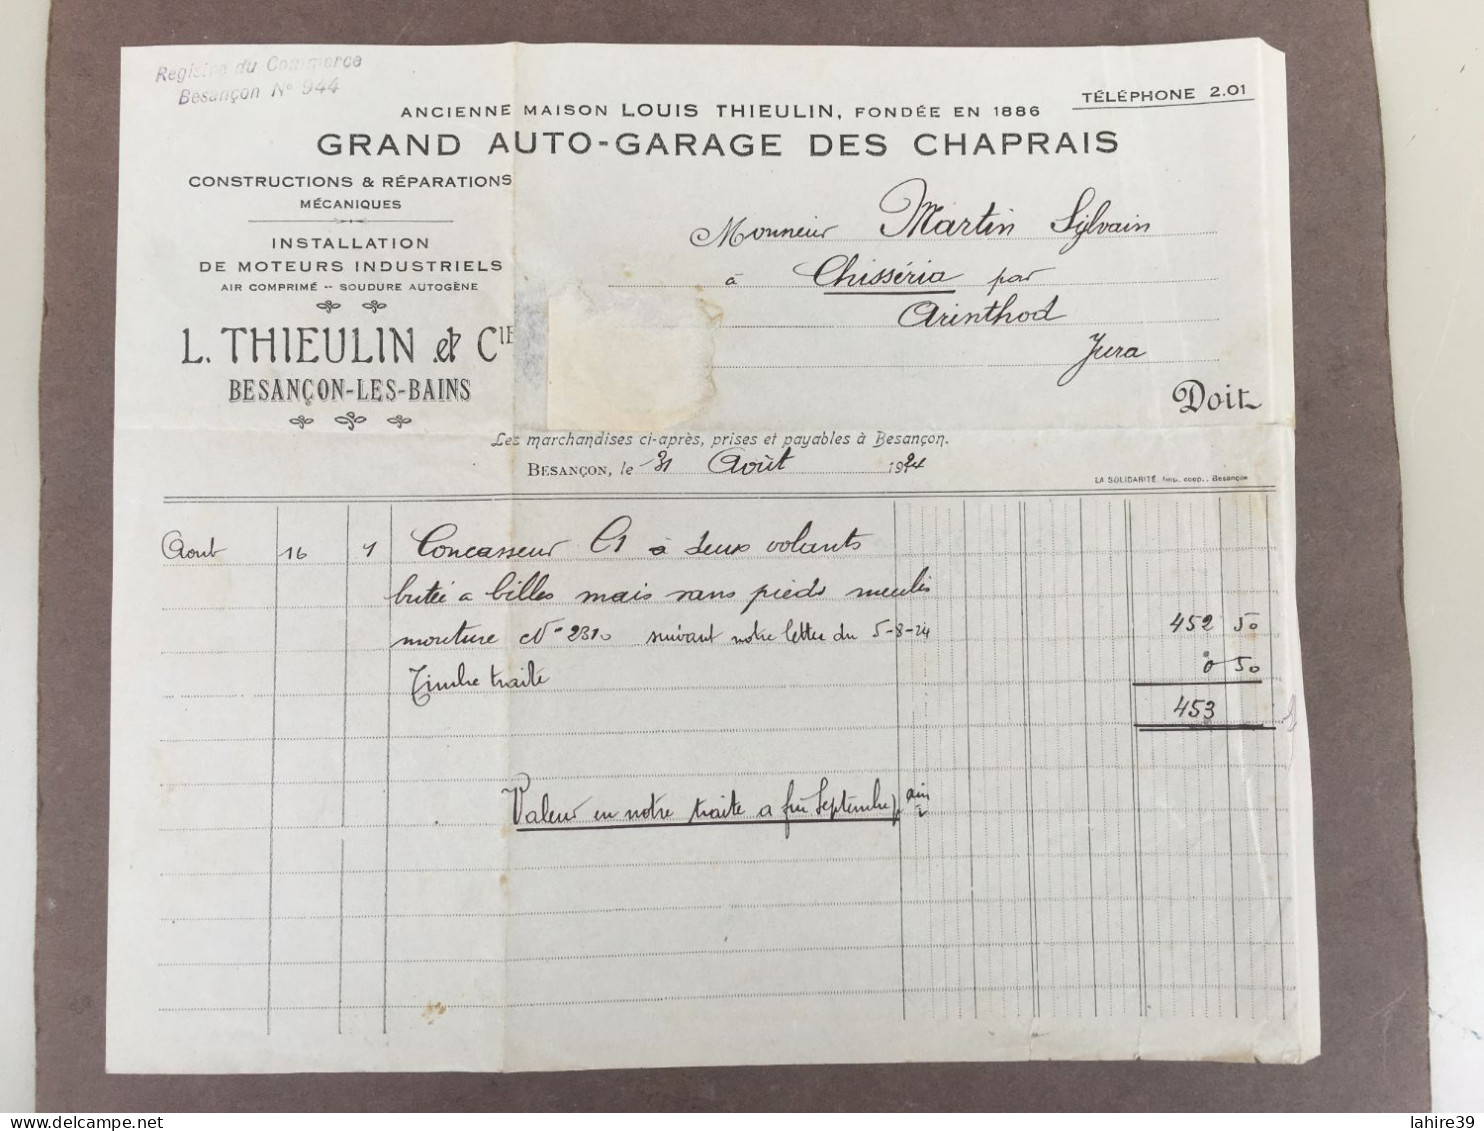 Registre du Commerce
Besançon N° 944
TÉLÉPHONE 2.01
ANCIENNE MAISON LOUIS THIEULIN, FONDÉE EN 1886
GRAND AUTO-GARAGE DES CHAPRAIS
CONSTRUCTIONS & RÉPARATIONS
MÉCANIQUES
INSTALLATION
DE MOTEURS INDUSTRIELS
AIR COMPRIMÉ -- SOUDURE AUTOGÈNE
L. THIEULIN et CIE
BESANÇON-LES-BAINS
Monsieur Martin Sylvain
à Chisséria par
Arinthod
Jura
Doit
Les marchandises ci-après, prises et payables à Besançon.
BESANÇON, le 31 Août 1924
LA SOLIDARITÉ, Imp. coop., Besançon
Aout 16 1 Concasseur C1 à deux volants
butée a billes mais sans pieds meules
mouture N° 2310 suivant notre lettre du 5-8-24 452 50
Timbre traite 0 50
453
Valeur en notre traite a fin Septembre